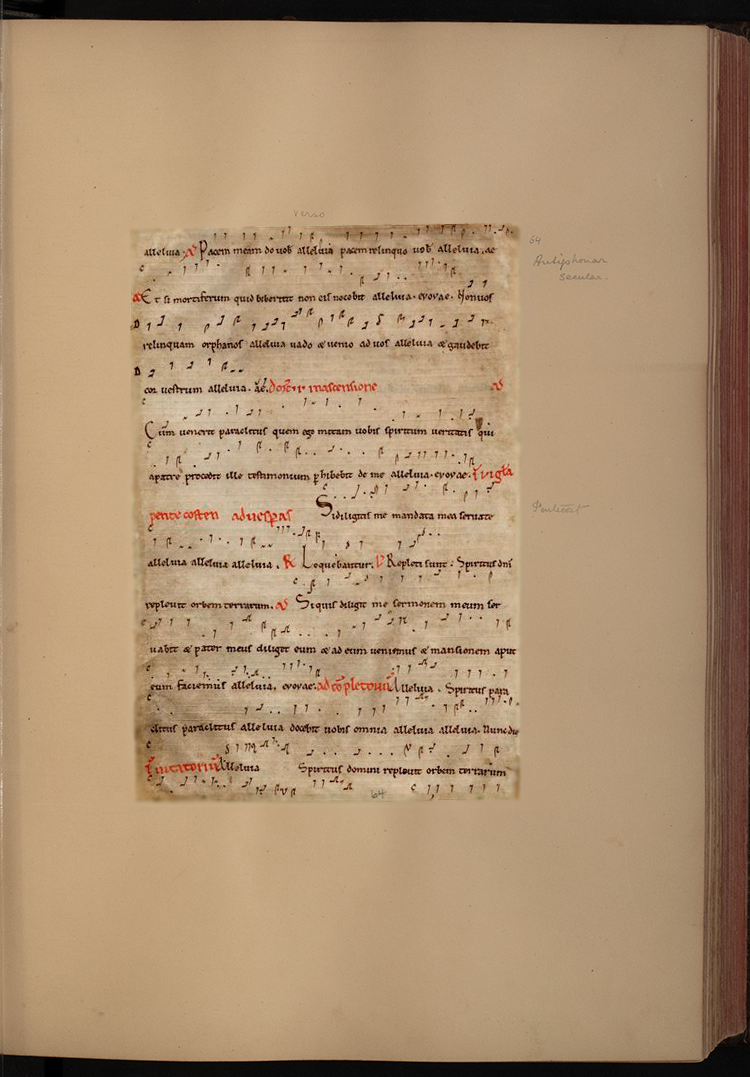 verso
alleluia. A Pacem meam do uob alleluia pacem relinquo uob alleluia. ae
A Et si mortiferum quid biberint non eis nocebit alleluia. evovae. Non uos
relinquam orphanos alleluia uado & uenio ad uos alleluia & gaudebit
cor uestrum alleluia. in ascensione A
Cum uenerit paraclitus quem ego mittam uobis spiritum ueritatis qui
apatre procedit ille testimonium phibebit de me alleluia. evovae. I uigla
pente costen ad uesperas Sidiligitis me mandata mea seruate
alleluia alleluia alleluia. R Loquebantur. V Repleti sunt. Spiritus dni
repleuit orbem terrarum. A Siquis diligit me sermonem meum ser
uabit & pater meus diliget eum & ad eum ueniemus & mansionem aput
eum faciemus alleluia. evovae. ad cōpletoriū Alleluia. Spiritus para
clitus paraclitus alleluia docebit uobis omnia alleluia alleluia. Nunc di
Inuitatoriū Alleluia Spiritus domini repleuit orbem terrarum
64
64
Antiphonar
secular.
Pentecost